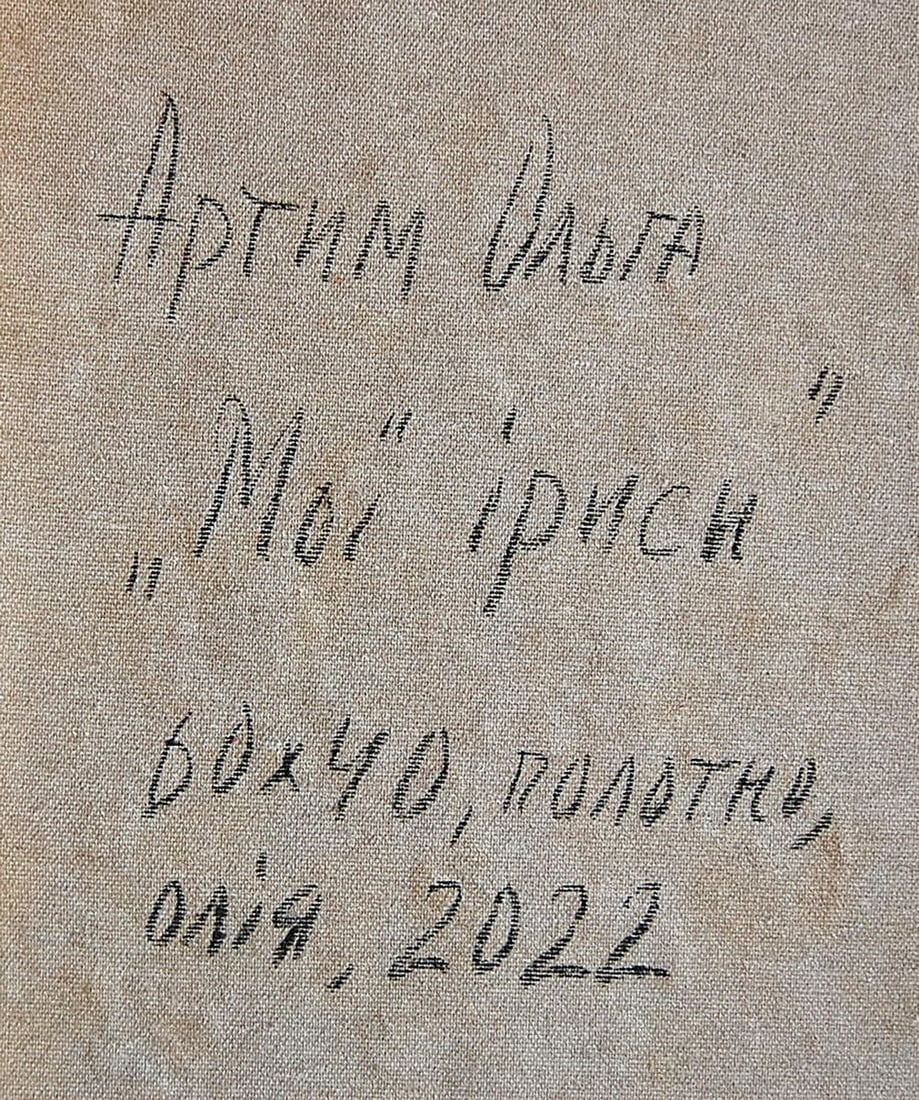 Артим Ольга
„Мої іриси"
60х40, полотно,
олія, 2022